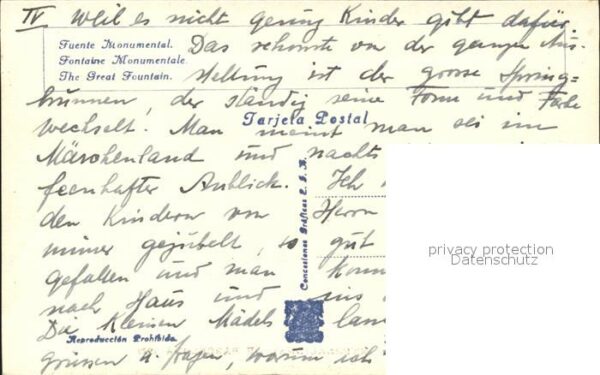 IV Weil es nicht genug Kinder gibt dafür.
Fuente Monumental.
Fontaine Monumentale
The Great Fountain.
Das schonste von der ganzen Aus-
stellung ist der grosse Spring-
brunnen, der ständig seine Form und Farbe
Tarjeta Postal
wechselt. Man meint man sei im
Märchenland und nachts
feenhafter Anblick. Ich
den Kindern von Herrn
immer gejubelt, so gut
gefallen und man
nach Haus und ins
Die kleinen Mädels
grüssen u. fragen, warum ich
Concesionas Gráficas E. I. B.
Reproducción Prohibida
privacy protection
Datenschutz